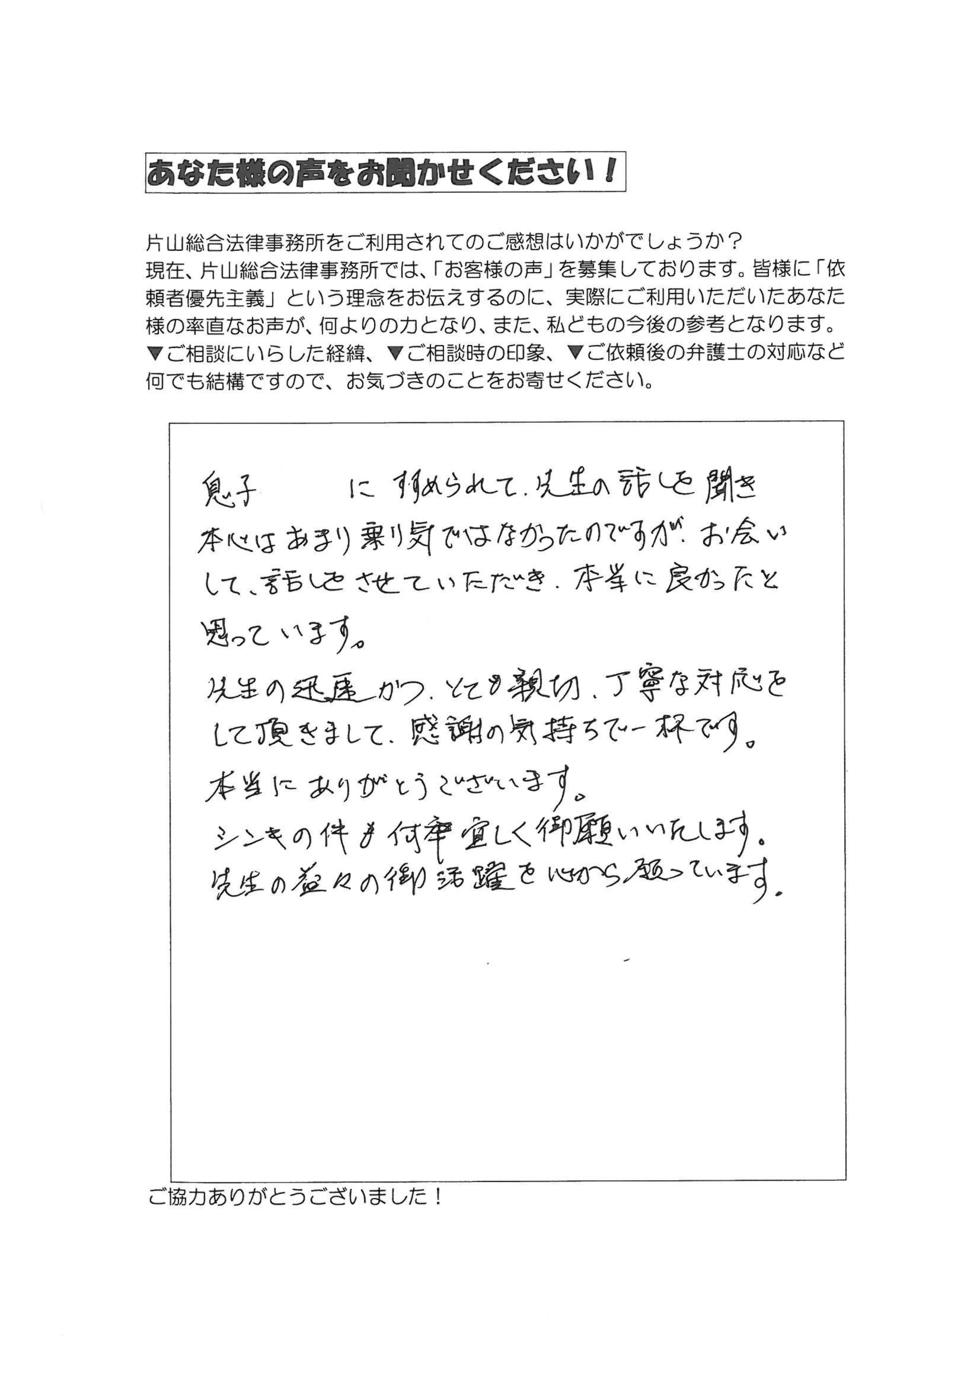 あなた様の声をお聞かせください！
片山総合法律事務所をご利用されてのご感想はいかがでしょうか？
現在、片山総合法律事務所では、「お客様の声」を募集しております。皆様に「依
頼者優先主義」という理念をお伝えするのに、実際にご利用いただいたあなた
様の率直なお声が、何よりの力となり、また、私どもの今後の参考となります。
▼ご相談にいらした経緯、▼ご相談時の印象、▼ご依頼後の弁護士の対応など
何でも結構ですので、お気づきのことをお寄せください。
息子 に すすめられて、先生の話しを聞き
本心はあまり乗り気ではなかったのですが、お会い
して、話しをさせていただき、本当に良かったと
思っています。
先生の迅速かつ、とても親切、丁寧な対応を
して頂きまして、感謝の気持ちで一杯です。
本当にありがとうございます。
シンキの件も何卒宜しく御願いいたします。
先生の益々の御活躍を心から願っています。
ご協力ありがとうございました！